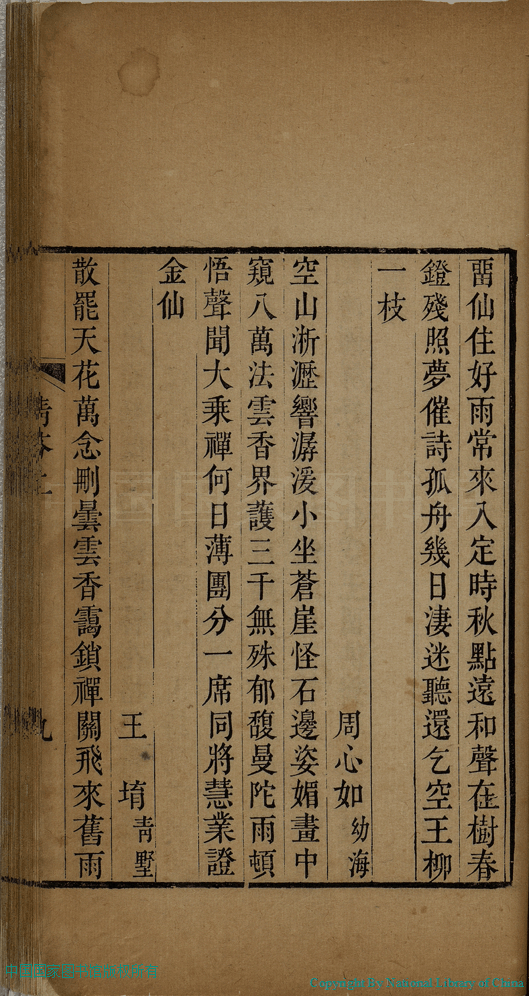 畱仙住好雨常來入定時秋點遠和聲在樹春
鐙殘照夢催詩孤舟幾日淒迷聽還乞空王柳
一枝
周心如幼海
空山淅瀝響潺湲小坐蒼崖怪石邊姿媚畫中
窺八萬法雲香界護三千無殊郁馥曼陀雨頓
悟聲聞大乘禪何日薄團分一席同將慧業證
金仙
王堉青墅
散罷天花萬念刪曇雲香靄鎖禪關飛來舊雨
九
Copyright By National Library of China